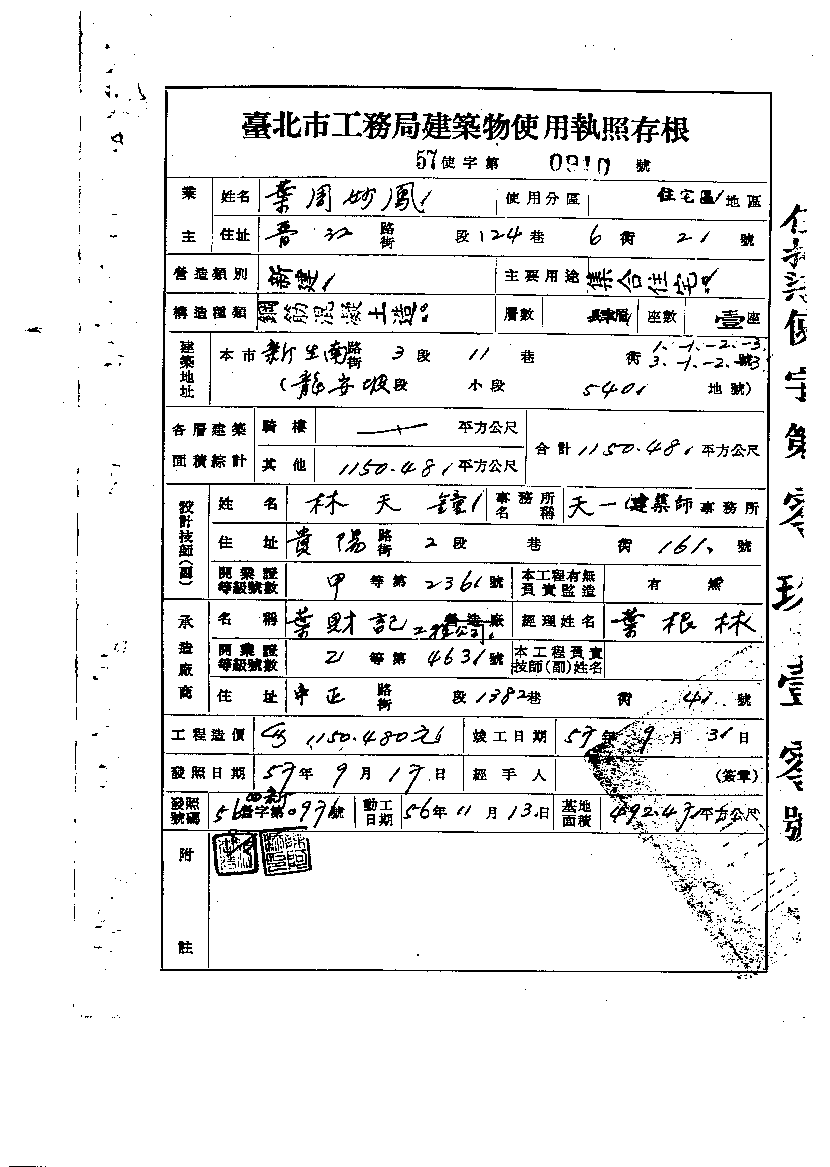 臺北市工務局建築物使用執照存根
57使字第 0910 號
業主 姓名 葉周妙鳳 使用分區 住宅區 地區
住址 晋江 路街 段 124 巷 6 衖 21 號
營造類別 新建 主要用途 集合住宅
構造種類 鋼筋混凝土造 層數 肆層 座數 壹座
建築地址 本市 新生南 路街 3 段 11 巷 衖 1.-1.-2.-3. 3.-1.-2.-3 號
(龍安坡段 小段 540 地號)
各層建築面積綜計 騎樓 — 平方公尺 合計 1150.48 平方公尺
其他 1150.48 平方公尺
設計技師(副) 姓名 林天鐘 事務所名稱 天一建築師事務所
住址 貴陽 路街 2 段 巷 衖 161 號
開業證等級號數 甲 等第 236 號 本工程有無負責監造 有 無
承造廠商 名稱 葉財記 營造廠 工程公司 經理姓名 葉根林
開業證等級號數 乙 等第 463 號 本工程負責技師(副)姓名
住址 中正 路街 段 1382 巷 衖 4 號
工程造價 1150.480元 竣工日期 57年 9 月 3 日
發照日期 57年 9 月 17日 經手人 (簽章)
發照號碼 56 營字第 097 號 動工日期 56年 11 月 13日 基地面積 492.47 平方公尺
附註
使字第零玖壹零號